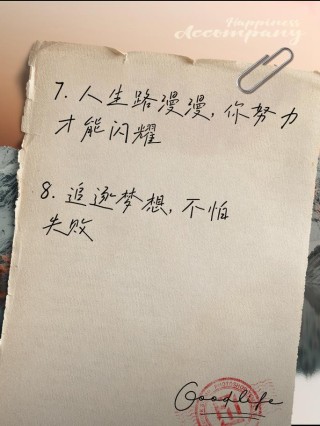 Happiness
Accompany
7. 人生路漫漫, 你努力
才能闪耀
8. 追逐梦想, 不怕
失败
Goodlife